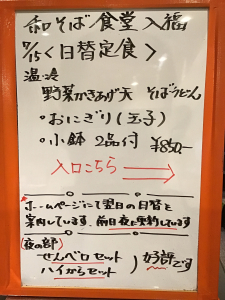 和そば食堂 入福
7/15<日替定食>
温・冷
野菜かきあげ天 そばうどん
・おにぎり(玉子)
・小鉢 2品付 ¥850-
入口こちら
*ホームページにて翌日の日替を
案内しています、前日夜に更新しています
(夜の部)
せんべろセット
ハイからセット 好評です